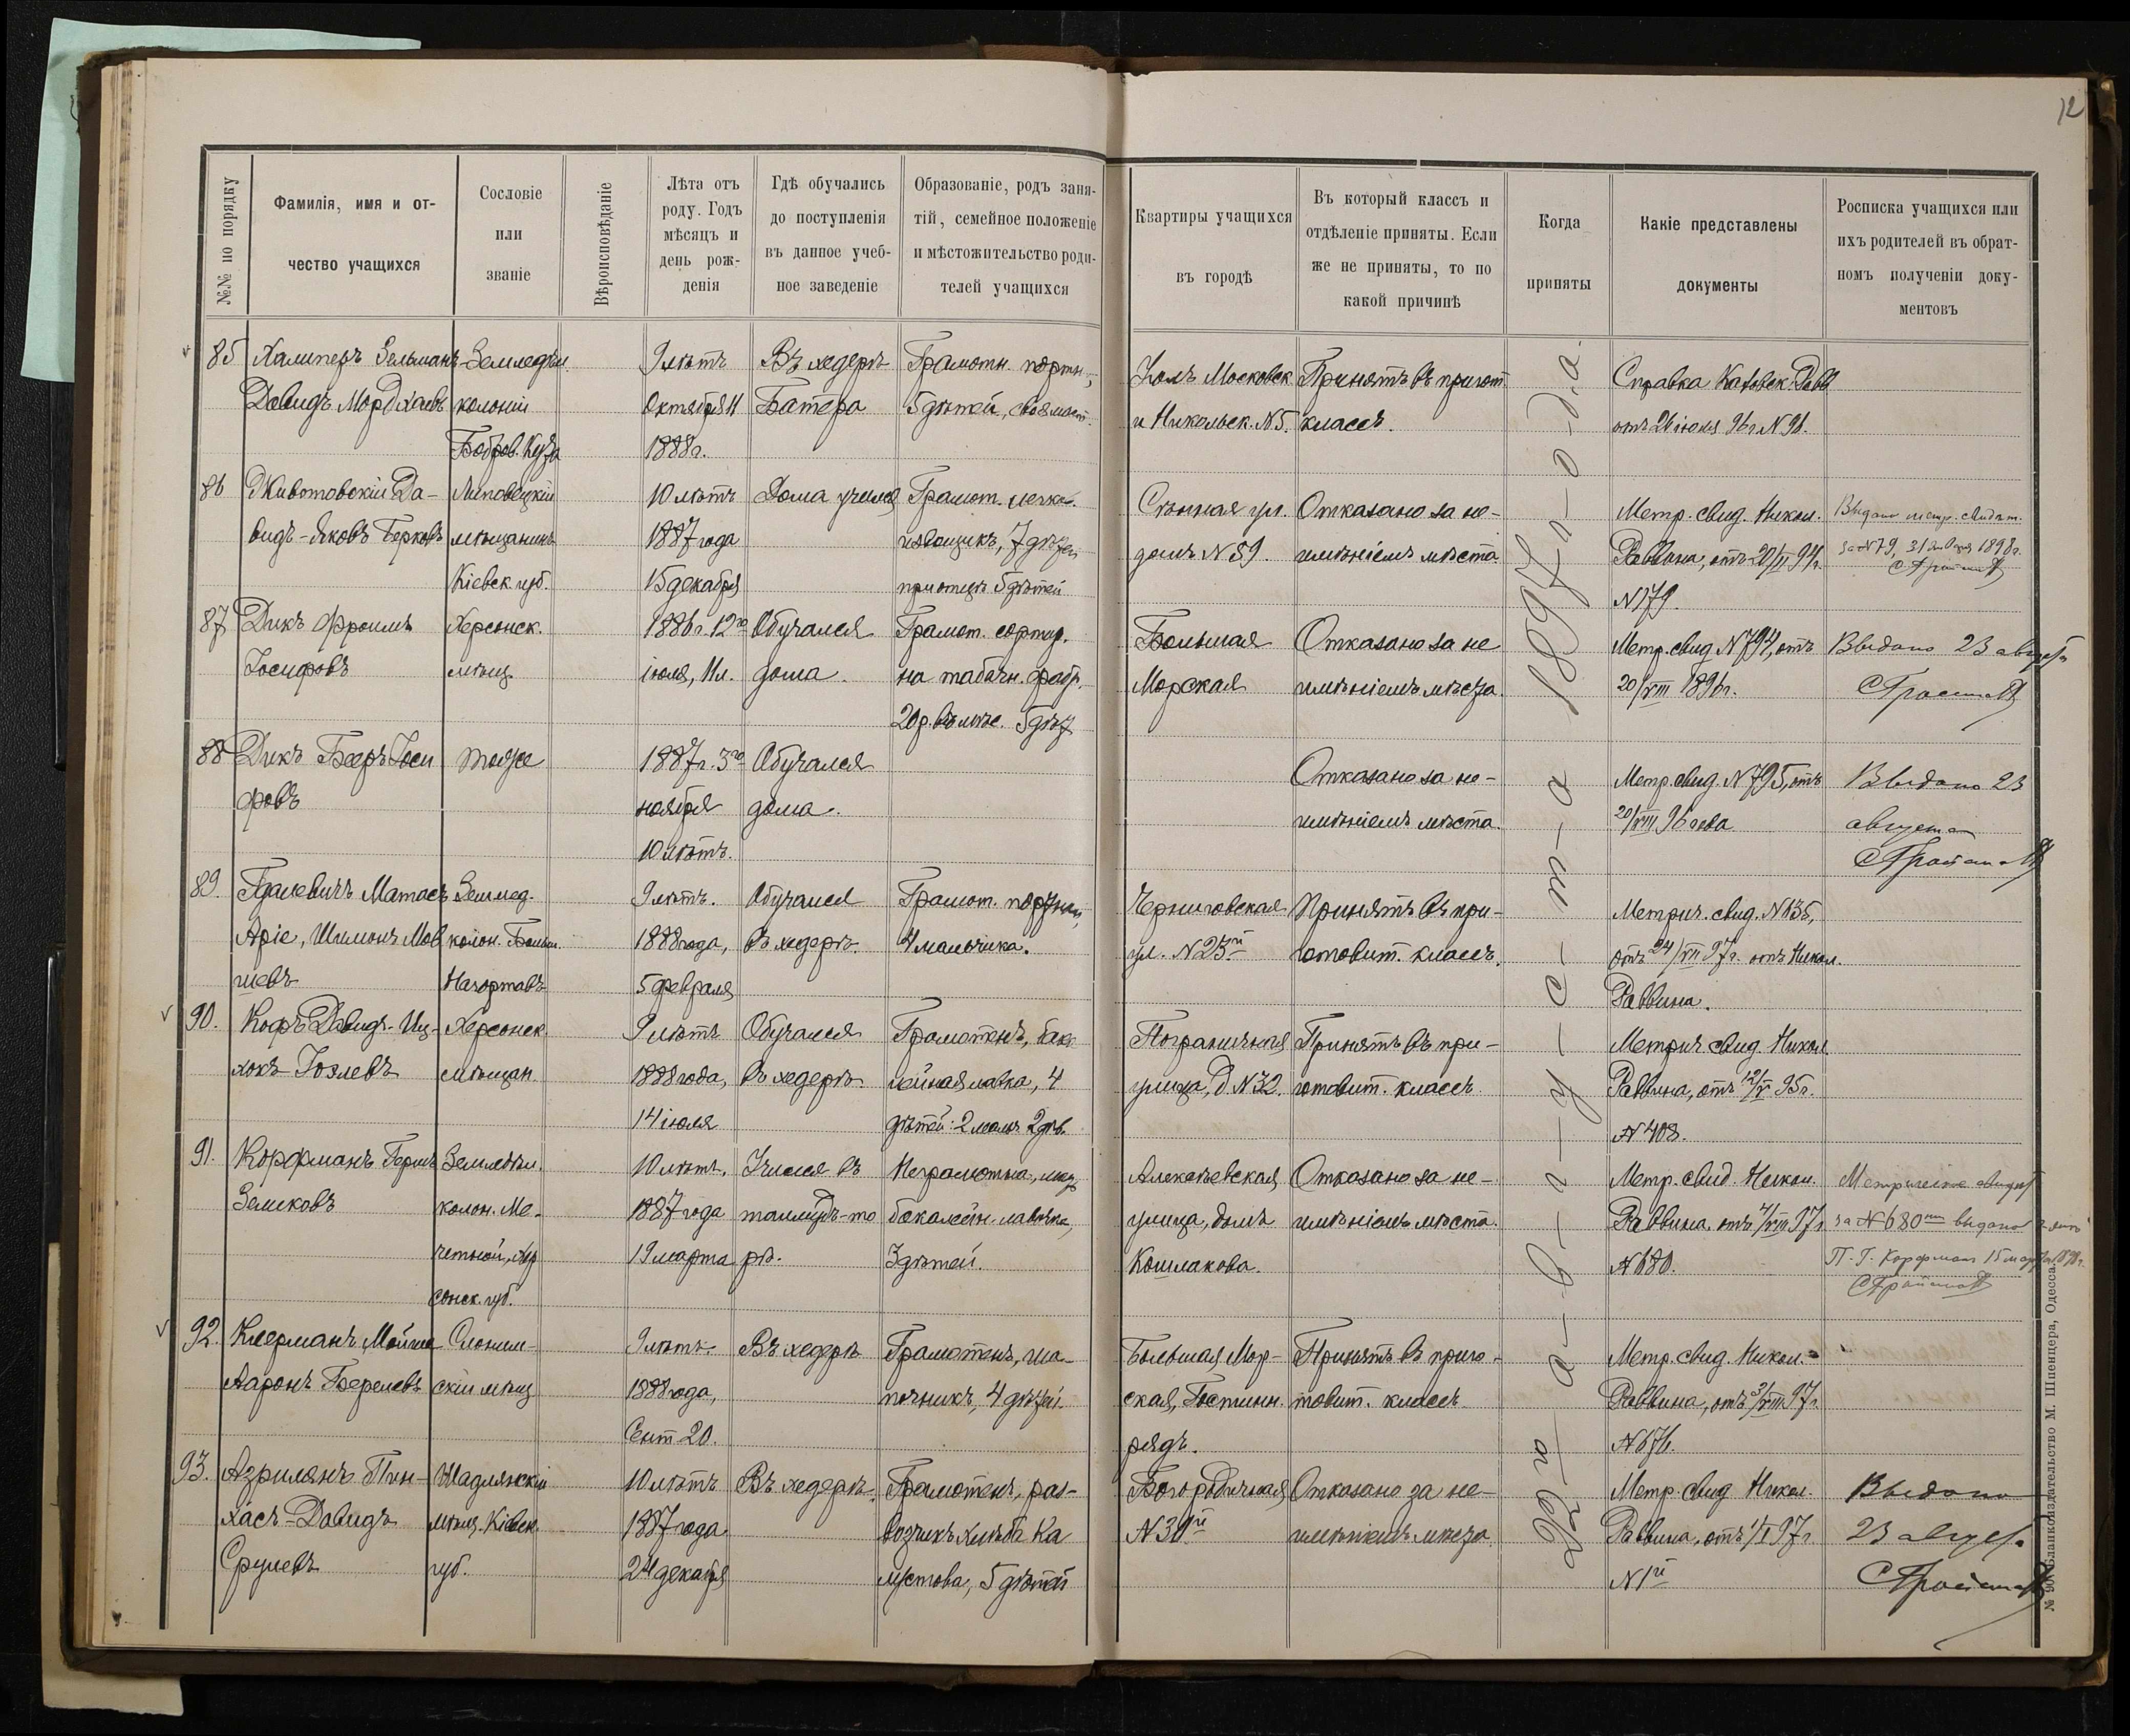 12
№№ по порядку
Фамилія, имя и от-
чество учащихся
Сословіе
или
званіе
Вѣроисповѣданіе
Лѣта отъ
роду. Годъ
мѣсяцъ и
день рож-
денія
Гдѣ обучались
до поступленія
въ данное учеб-
ное заведеніе
Образованіе, родъ заня-
тій, семейное положеніе
и мѣстожительство роди-
телей учащихся
Квартиры учащихся
въ городѣ
Въ который классъ и
отдѣленіе приняты. Если
же не приняты, то по
какой причинѣ
Когда
приняты
Какіе представлены
документы
Росписка учащихся или
ихъ родителей въ обрат-
номъ полученіи доку-
ментовъ
85
Халиперъ Зельманъ-
Давидъ Мордхаевъ
Земледѣл.
колоніи
Бобров. Кутъ
9 лѣтъ
Октября 11
1888 г.
Въ хедерѣ
Батера
Грамотн. портн.,
5 дѣтей,
Уголъ Московск.
и Никольск. № 5.
Принятъ въ пригот.
классъ.
Справка
отъ 26 іюля 96 г. № 96.
86
Животовскій Да-
видъ-Яковъ Берковъ
Липовецкій
мѣщанинъ
Кіевск. губ.
10 лѣтъ
1887 года
15 декабря
Дома учился
Грамот. легков.
извощикъ, 7 дѣтей
при отцѣ 5 дѣтей
Сѣнная ул.
домъ № 89.
Отказано за не-
имѣніемъ мѣста.
Метр. свид. Никол.
Раввина, отъ 20/II 94 г.
№ 179.
Выдано метр. свидѣт.
за № 79, 31 января 1898 г.
87
Дикъ Фроимъ
Іосифовъ
Херсонск.
мѣщ.
1886 г. 12го
іюля, 11 л.
Обучался
дома.
Грамот. сортир.
на табачн. фабр.
20 р. въ мѣс. 5 дѣт.
Большая
Морская
Отказано за не
имѣніемъ мѣста.
Метр. свид № 794, отъ
20/VIII 1896 г.
Выдано 23 август.
88
Дикъ Бееръ Іоси
фовъ
тоже
1887 г. 3го
ноября
10 лѣтъ.
Обучался
дома.
Отказано за не-
имѣніемъ мѣста.
Метр. свид. № 795, отъ
20/VIII 96 года
Выдано 23
августа
89.
Гдалевичъ Матасъ
Аріе, Шимонъ Мов
шевъ
Землед.
колон. Больш.
Нагортавъ
9 лѣтъ.
1888 года,
5 февраля
Обучался
въ хедерѣ.
Грамот. портной,
4 мальчика.
Черниговская
ул. № 23й
Принятъ въ при-
готовит. классъ.
Метрич. свид. № 635,
отъ 24/VII 97 г. отъ Никол.
Раввина.
90.
Кофъ Давидъ-Иц-
хокъ Іоэлевъ
Херсонск.
мѣщан.
9 лѣтъ
1888 года,
14 іюля
Обучался
въ хедерѣ
Грамотенъ, бака
лейная лавка, 4
дѣтей: 2 мальч. 2 дѣв.
Пограничная
улица, д № 32.
Принятъ въ при-
готовит. классъ
Метрич свид. Никол.
Раввина, отъ 12/V 95 г.
№ 408.
91.
Корфманъ Гершъ
Зеликовъ
Земледѣл.
колон. Ме-
четной, Хер
сонск. губ.
10 лѣтъ.
1887 года
19 марта
Учился въ
талмудъ-то
рѣ.
Неграмотна,
бакалейн. лавочка,
3 дѣтей.
Алексѣевская
улица, домъ
Кошлакова.
Отказано за не-
имѣніемъ мѣста.
Метр. свид. Никол.
Раввина, отъ 4/VIII 97 г.
№ 680.
за № 680 выдано
Корфманъ 15 марта
92.
Клерманъ Мойше
Ааронъ Берелевъ
Слоним-
скій мѣщ
9 лѣтъ.
1888 года,
Сент 20.
Въ хедерѣ
Грамотенъ, ша-
почникъ, 4 дѣтей.
Большая Мор-
ская, Гостинн.
рядъ.
Принятъ въ приго-
товит. классъ
Метр. свид. Никол.
Раввина, отъ 3/VIII 97 г.
№ 676.
93.
Азрилянъ Пин-
хасъ-Давидъ
Срулевъ
мѣщ. Кіевск.
губ.
10 лѣтъ
1887 года
24 декабря
Въ хедерѣ.
Грамотенъ, раз-
возчикъ хлѣба Ка
мстова, 5 дѣтей
Богородичная
№ 30й
Отказано за не-
имѣніемъ мѣста.
Метр. свид Никол.
Раввина, отъ 1/I 97 г
№ 1й
Выдано
23 август.
23го а-в-г-у-с-т-а 1897 г-о-д-а.
№ 90 Бланкоиздательство М. Шпенцера, Одесса.